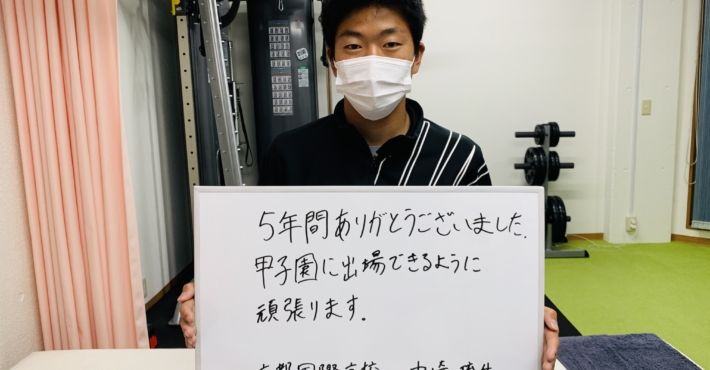 5年間ありがとうございました.
甲子園に出場できるように
頑張ります.
京都国際高校